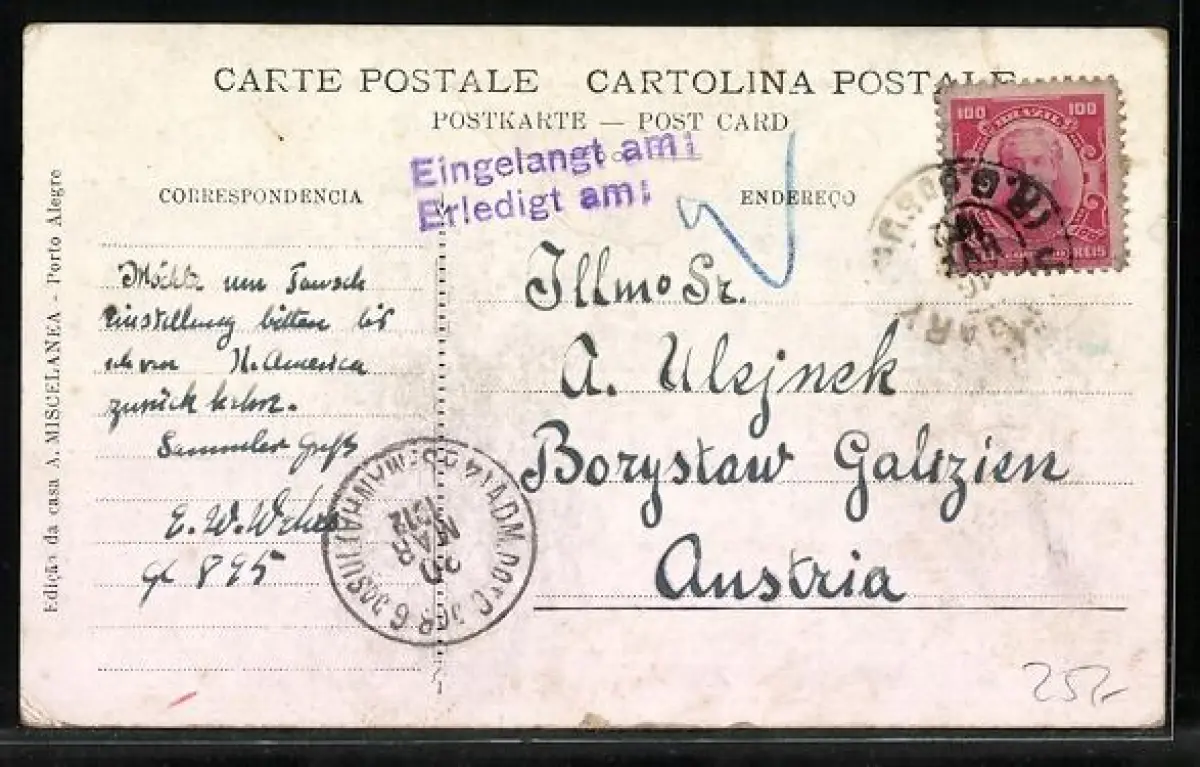 CARTE POSTALE CARTOLINA POSTALE
POSTKARTE — POST CARD
Eingelangt am:
Erledigt am:
CORRESPONDENCIA
ENDEREÇO
100 BRAZIL 100
REIS
Möchte um Tausch
einstellung bitten bis
ich von N. America
zurück kehre.
Sammler Gruß
E. W. Weber
895
Illmo Sr.
A. Ulejnek
Borysław Galizien
Austria
30
MAR
1912
252-
Edição da casa A. MISCELANEA - Porto Alegre